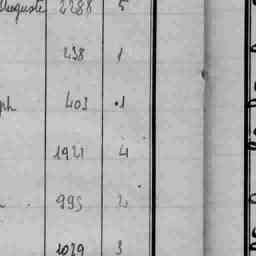 Auguste 2288 5
238 1
ph 403 1
1921 4
993 2
1029 3